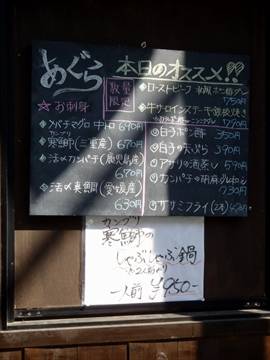 めぐろ
本日のオススメ!!
数量限定
☆お刺身
・メバチマグロ 中トロ 690円
カンブリ
・寒鰤(三重産) 670円
・活〆カンパチ(鹿児島産)
670円
・活〆真鯛(愛媛産)
630円
・ローストビーフ
750円
・牛サーロインステーキ鉄板焼き
・白子ポン酢 350円
・白子の天ぷら
・アサリの酒蒸し 590円
・カンパチの胡麻
730円
・ササミフライ(2本)
カンブリ
寒鰤の
しゃぶしゃぶ鍋
※2人前より
一人前 ¥950-